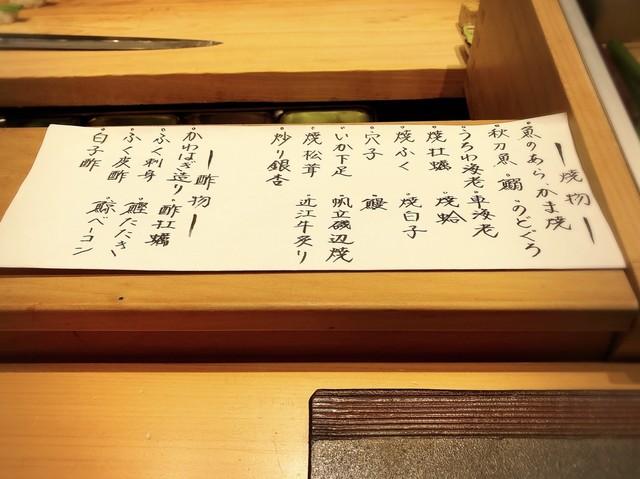 ー焼物ー
・魚のあら・かま焼
・秋刀魚 ・鰯 ・のどぐろ
・うちわ海老 ・車海老
・焼牡蠣 ・焼蛤
・焼ふく ・焼白子
・穴子 ・鰻
・いか下足 ・帆立磯辺焼
・焼松茸 ・近江牛炙り
・炒り銀杏
ー酢物ー
・かわはぎ造り ・酢牡蠣
・ふく刺身 ・鰹たたき
・ふく皮酢 ・鯨ベーコン
・白子酢